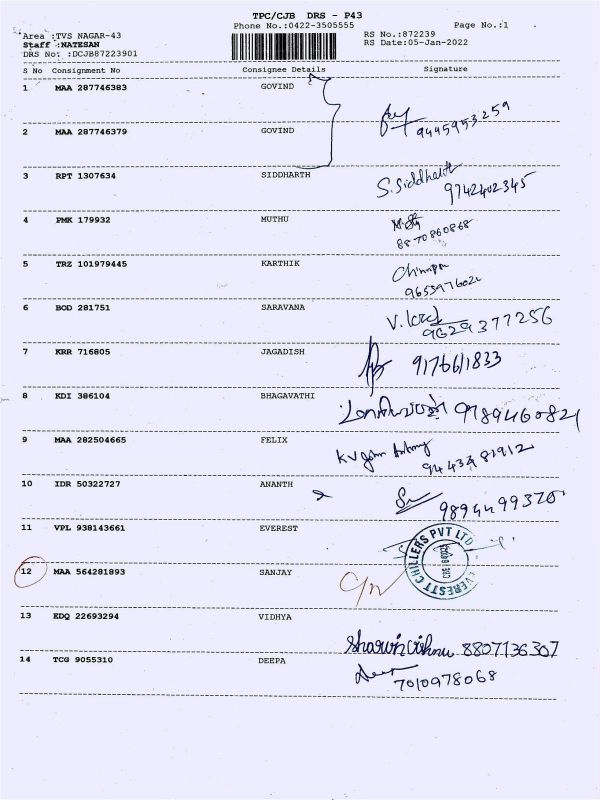 TPC/CJB DRS - P43
Phone No.:0422-3505555 Page No.:1
Area :TVS NAGAR-43 RS No.:872239
Staff :NATESAN RS Date:05-Jan-2022
DRS No: :DCJB87223901
S No Consignment No Consignee Details Signature
1 MAA 287746383 GOVIND
2 MAA 287746379 GOVIND 9445953259
3 RPT 1307634 SIDDHARTH S. Siddharth
9742402345
4 PMK 179932 MUTHU
8870860868
5 TRZ 101979445 KARTHIK
965597602
6 BOD 281751 SARAVANA
9629377256
7 KRR 716805 JAGADISH 9176611833
8 KDI 386104 BHAGAVATHI 9789460821
9 MAA 282504665 FELIX
10 IDR 50322727 ANANTH
11 VPL 938143661 EVEREST
EVERESTT CHILLERS PVT LTD
12 MAA 564281893 SANJAY
13 EDQ 22693294 VIDHYA
8807136307
14 TCG 9055310 DEEPA
7010978068